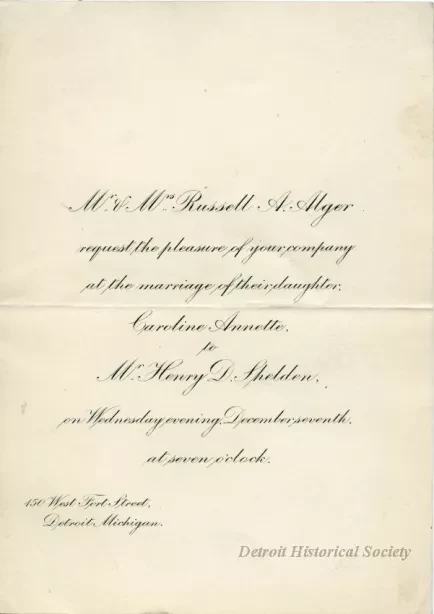 Mr. & Mrs. Russell A. Alger
request the pleasure of your company
at the marriage of their daughter,
Caroline Annette,
to
Mr. Henry D. Shelden,
on Wednesday evening, December seventh,
at seven o'clock.
150 West Fort Street,
Detroit Michigan.
Detroit Historical Society